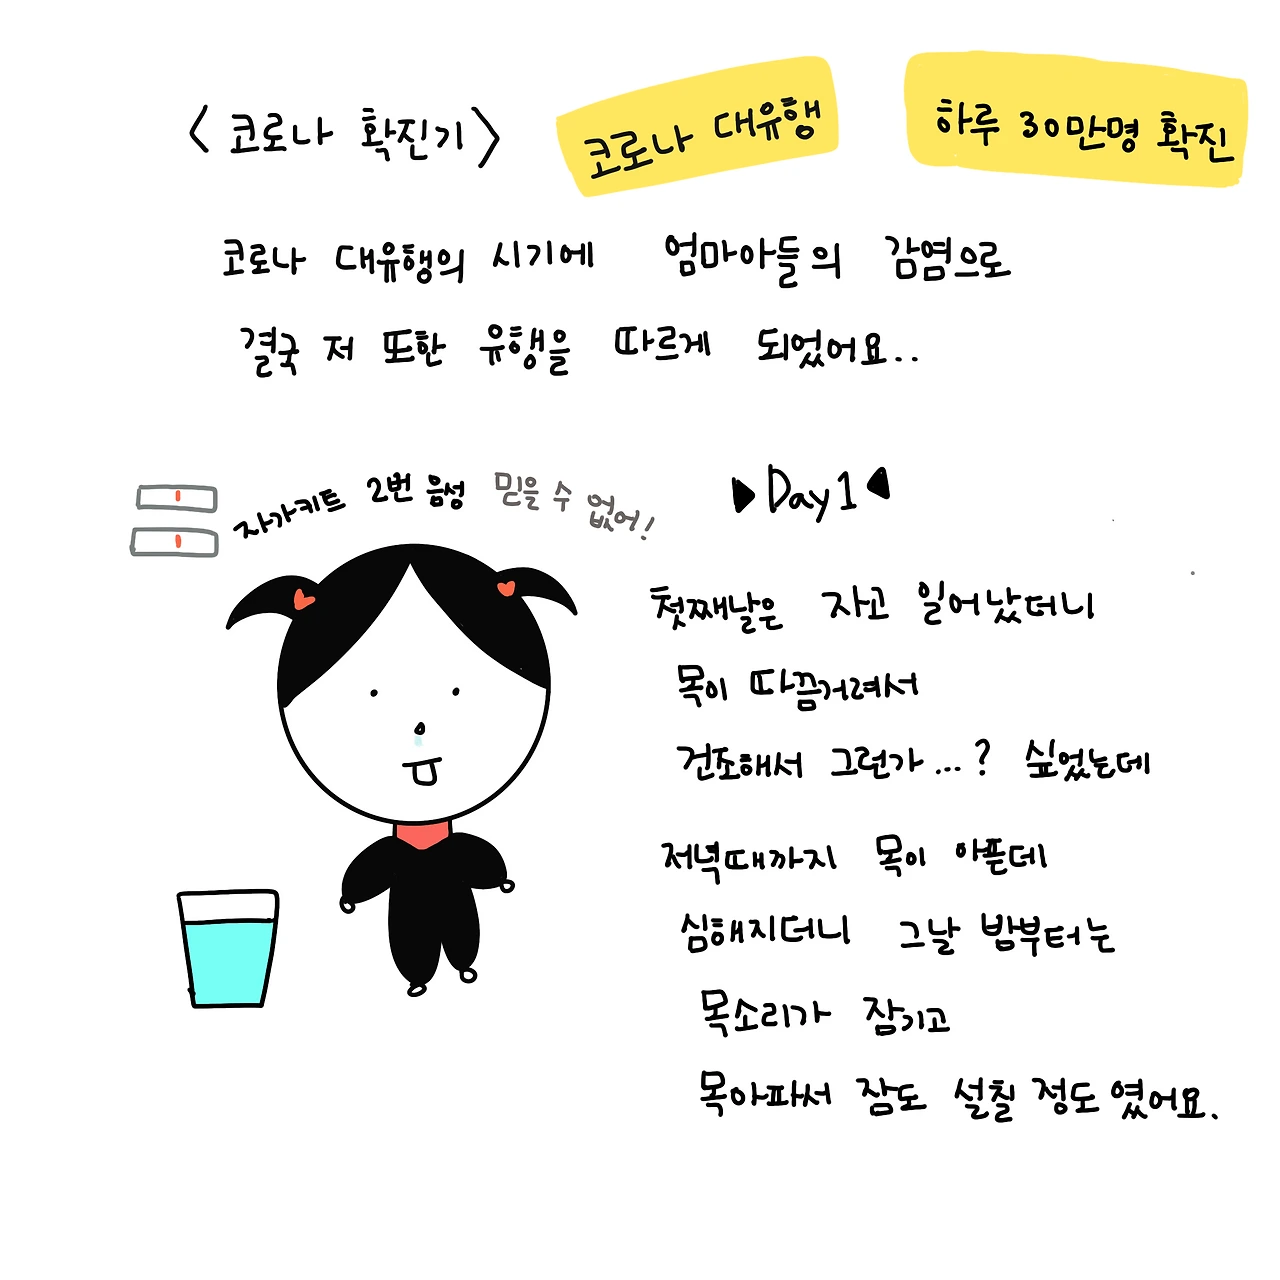 <코로나 확진기> 코로나 대유행 하루 30만명 확진
코로나 대유행의 시기에 엄마아들의 감염으로
결국 저 또한 유행을 따르게 되었어요..
자가키트 2번 음성 믿을 수 없어!
▶Day1◀
첫째날은 자고 일어났더니
목이 따끔거려서
건조해서 그런가...? 싶었는데
저녁때까지 목이 아픈데
심해지더니 그날 밤부터는
목소리가 잠기고
목아파서 잠도 설칠 정도였어요.